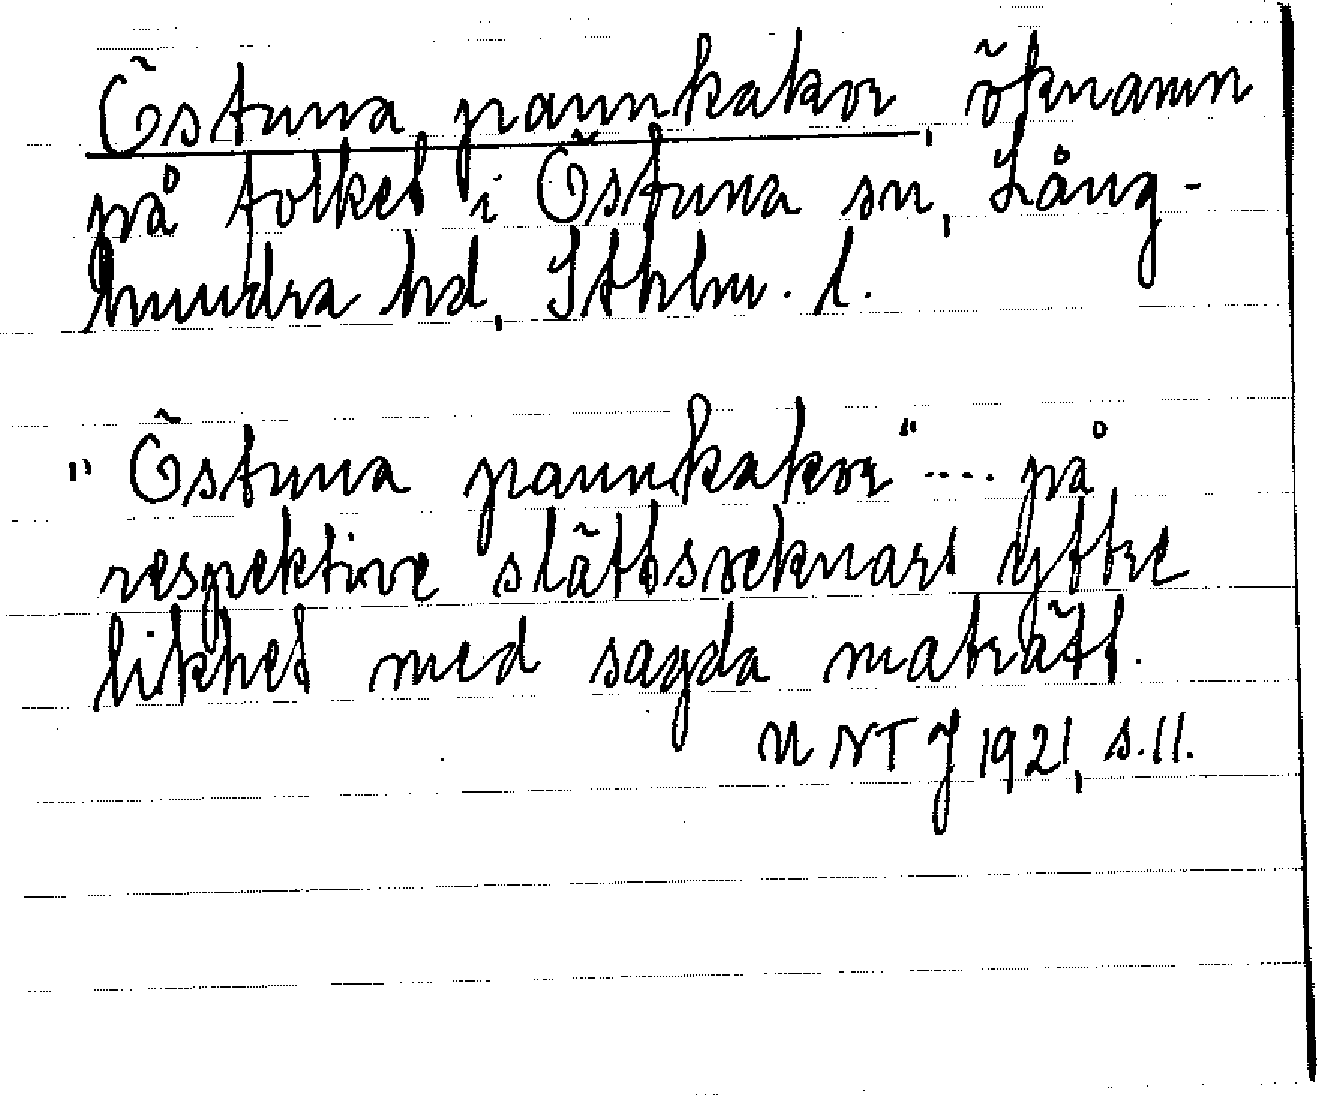 Östuna pannkakor, öknamn
på folket i Östuna sn, Lång-
hundra hd, Sthlm. l.
"Östuna pannkakor" .... på
respektive slättsocknars yttre
likhet med sagda maträtt.
UNTJ 1921, s. 11.